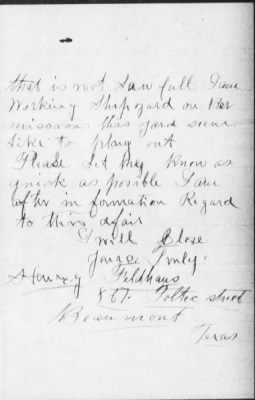 that is not Lawfull I am
Working Shipyard on Her
mission this yard seem
like to play out
Please Let They Know as
quick as possible I am
after information Regard
to this afair
I will Close
Yours Truly.
Henry Feldhaus
867. Toltec street
Beaumont
Texas